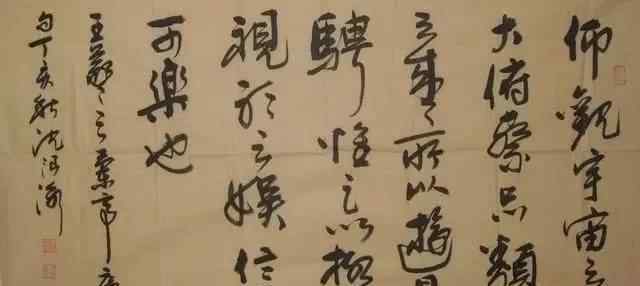 仰觀宇宙之
大俯察品類
之盛所以遊目
騁懷足以極
視聽之娛信
可樂也
王羲之蘭亭序
句丁亥秋沈